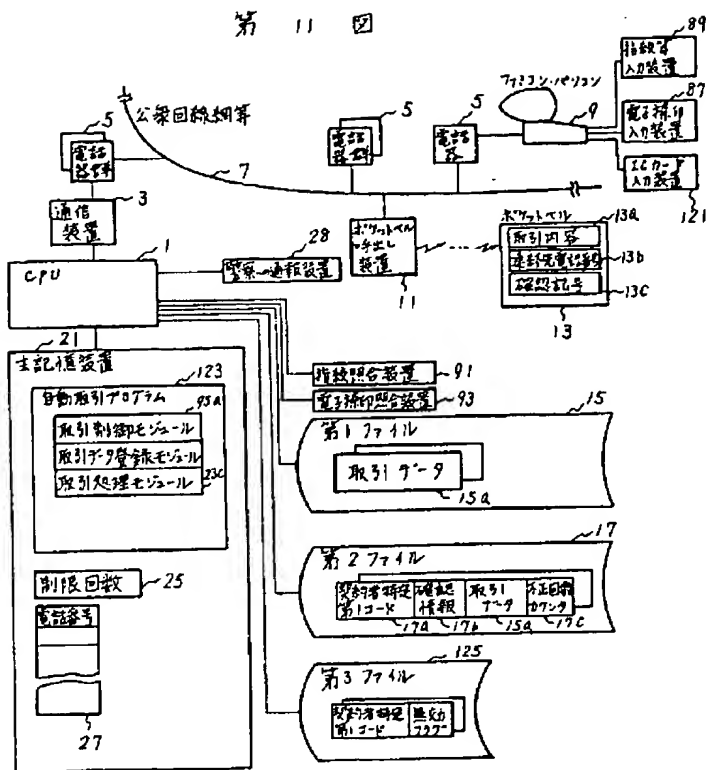 第 11 図
公衆回線網等
5
電話
器群
3
通信
装置
7
1
CPU
28
警察への通報装置
5
電話
器群
5
電話
器
ファミコン・パソコン
9
89
指紋等
入力装置
87
電子捺印
入力装置
ICカード
入力装置
121
ポケットベル
呼出し
装置
11
ポケットベル
13a
取引内容
連絡先電話番号
13b
確認記号
13c
13
21
主記憶装置
123
自動取引プログラム
95a
取引制御モジュール
取引データ登録モジュール
取引処理モジュール
23c
制限回数
25
電話番号
27
指紋照合装置
91
電子捺印照合装置
93
15
第1ファイル
取引データ
15a
17
第2ファイル
契約者特定
第1コード
確認
情報
取引
データ
不正回数
カウンタ
17a
17b
15a
17c
125
第3ファイル
契約者特定
第1コード
無効
フラグ